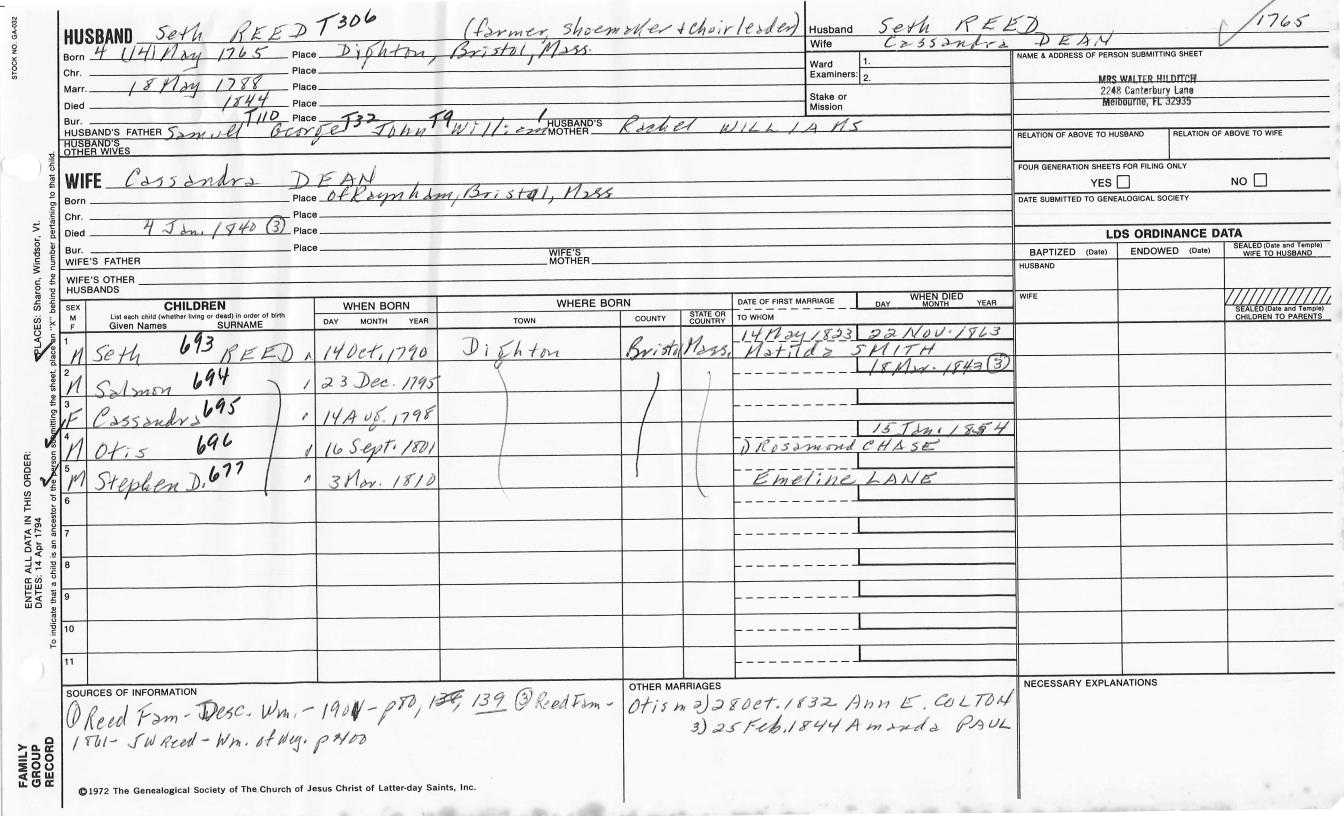 STOCK NO. GA-032
HUSBAND Seth REED T306 (farmer, shoemaker + choirleader)
Born 4 (14) May 1765 Place Dighton, Bristol, Mass.
Chr. Place
Marr. 18 May 1788 Place
Died 1844 Place
Bur. Place
HUSBAND'S FATHER Samuel T110 George T32 John T9 William 1 HUSBAND'S MOTHER Rachel WILLIAMS
HUSBAND'S OTHER WIVES
Husband Seth REED 1765
Wife Cassandra DEAN
Ward Examiners: 1.
2.
Stake or Mission
NAME & ADDRESS OF PERSON SUBMITTING SHEET
MRS WALTER HILDITCH
2248 Canterbury Lane
Melbourne, FL 32935
RELATION OF ABOVE TO HUSBAND RELATION OF ABOVE TO WIFE
FOUR GENERATION SHEETS FOR FILING ONLY
YES NO
DATE SUBMITTED TO GENEALOGICAL SOCIETY
WIFE Cassandra DEAN
Born Place of Raynham, Bristol, Mass
Chr. Place
Died 4 Jan. 1840 (3) Place
Bur. Place
WIFE'S FATHER WIFE'S MOTHER
WIFE'S OTHER HUSBANDS
LDS ORDINANCE DATA
BAPTIZED (Date) ENDOWED (Date) SEALED (Date and Temple) WIFE TO HUSBAND
HUSBAND
WIFE
SEALED (Date and Temple) CHILDREN TO PARENTS
SEX M F CHILDREN List each child (whether living or dead) in order of birth Given Names SURNAME
WHEN BORN DAY MONTH YEAR
WHERE BORN TOWN COUNTY STATE OR COUNTRY
DATE OF FIRST MARRIAGE TO WHOM
WHEN DIED DAY MONTH YEAR
1 M Seth 693 REED 14 Oct. 1790 Dighton Bristol Mass. 14 May 1823 22 Nov. 1863
Matilda SMITH
2 M Salmon 694 23 Dec. 1795 18 Mar. 1842 (3)
3 F Cassandra 695 14 Aug. 1798
4 M Otis 696 16 Sept. 1801 15 Jan. 1854
1) Rosamond CHASE
5 M Stephen D. 677 3 Mar. 1810 Emeline LANE
6
7
8
9
10
11
SOURCES OF INFORMATION
(1) Reed Fam - Desc. Wm. - 1901 - p80, 139 (3) Reed Fam -
1861 - JW Reed - Wm. of Wey. p 400
OTHER MARRIAGES
Otis m 2) 28 Oct. 1832 Ann E. COLTON
3) 25 Feb. 1844 Amanda PAUL
NECESSARY EXPLANATIONS
©1972 The Genealogical Society of The Church of Jesus Christ of Latter-day Saints, Inc.
FAMILY GROUP RECORD
ENTER ALL DATA IN THIS ORDER:
DATES: 14 Apr 1794
PLACES: Sharon, Windsor, Vt.
To indicate that a child is an ancestor of the person submitting the sheet, place an "X" behind the number pertaining to that child.